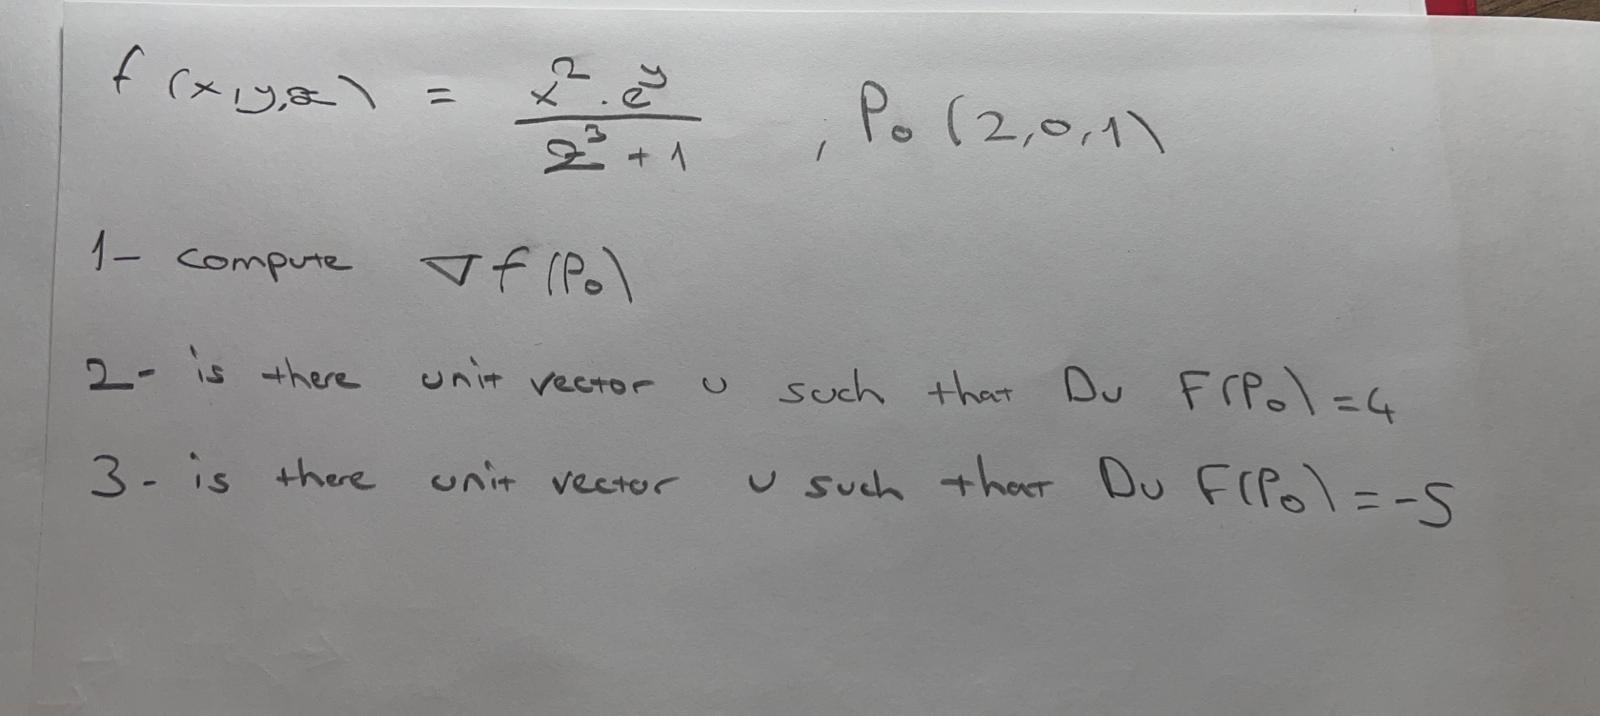 f(x,y,z) = x².e^y / z³ + 1 , P₀(2,0,1)
1- compute ∇f(P₀)
2- is there unit vector u such that Du F(P₀) = 4
3- is there unit vector u such that Du F(P₀) = -5